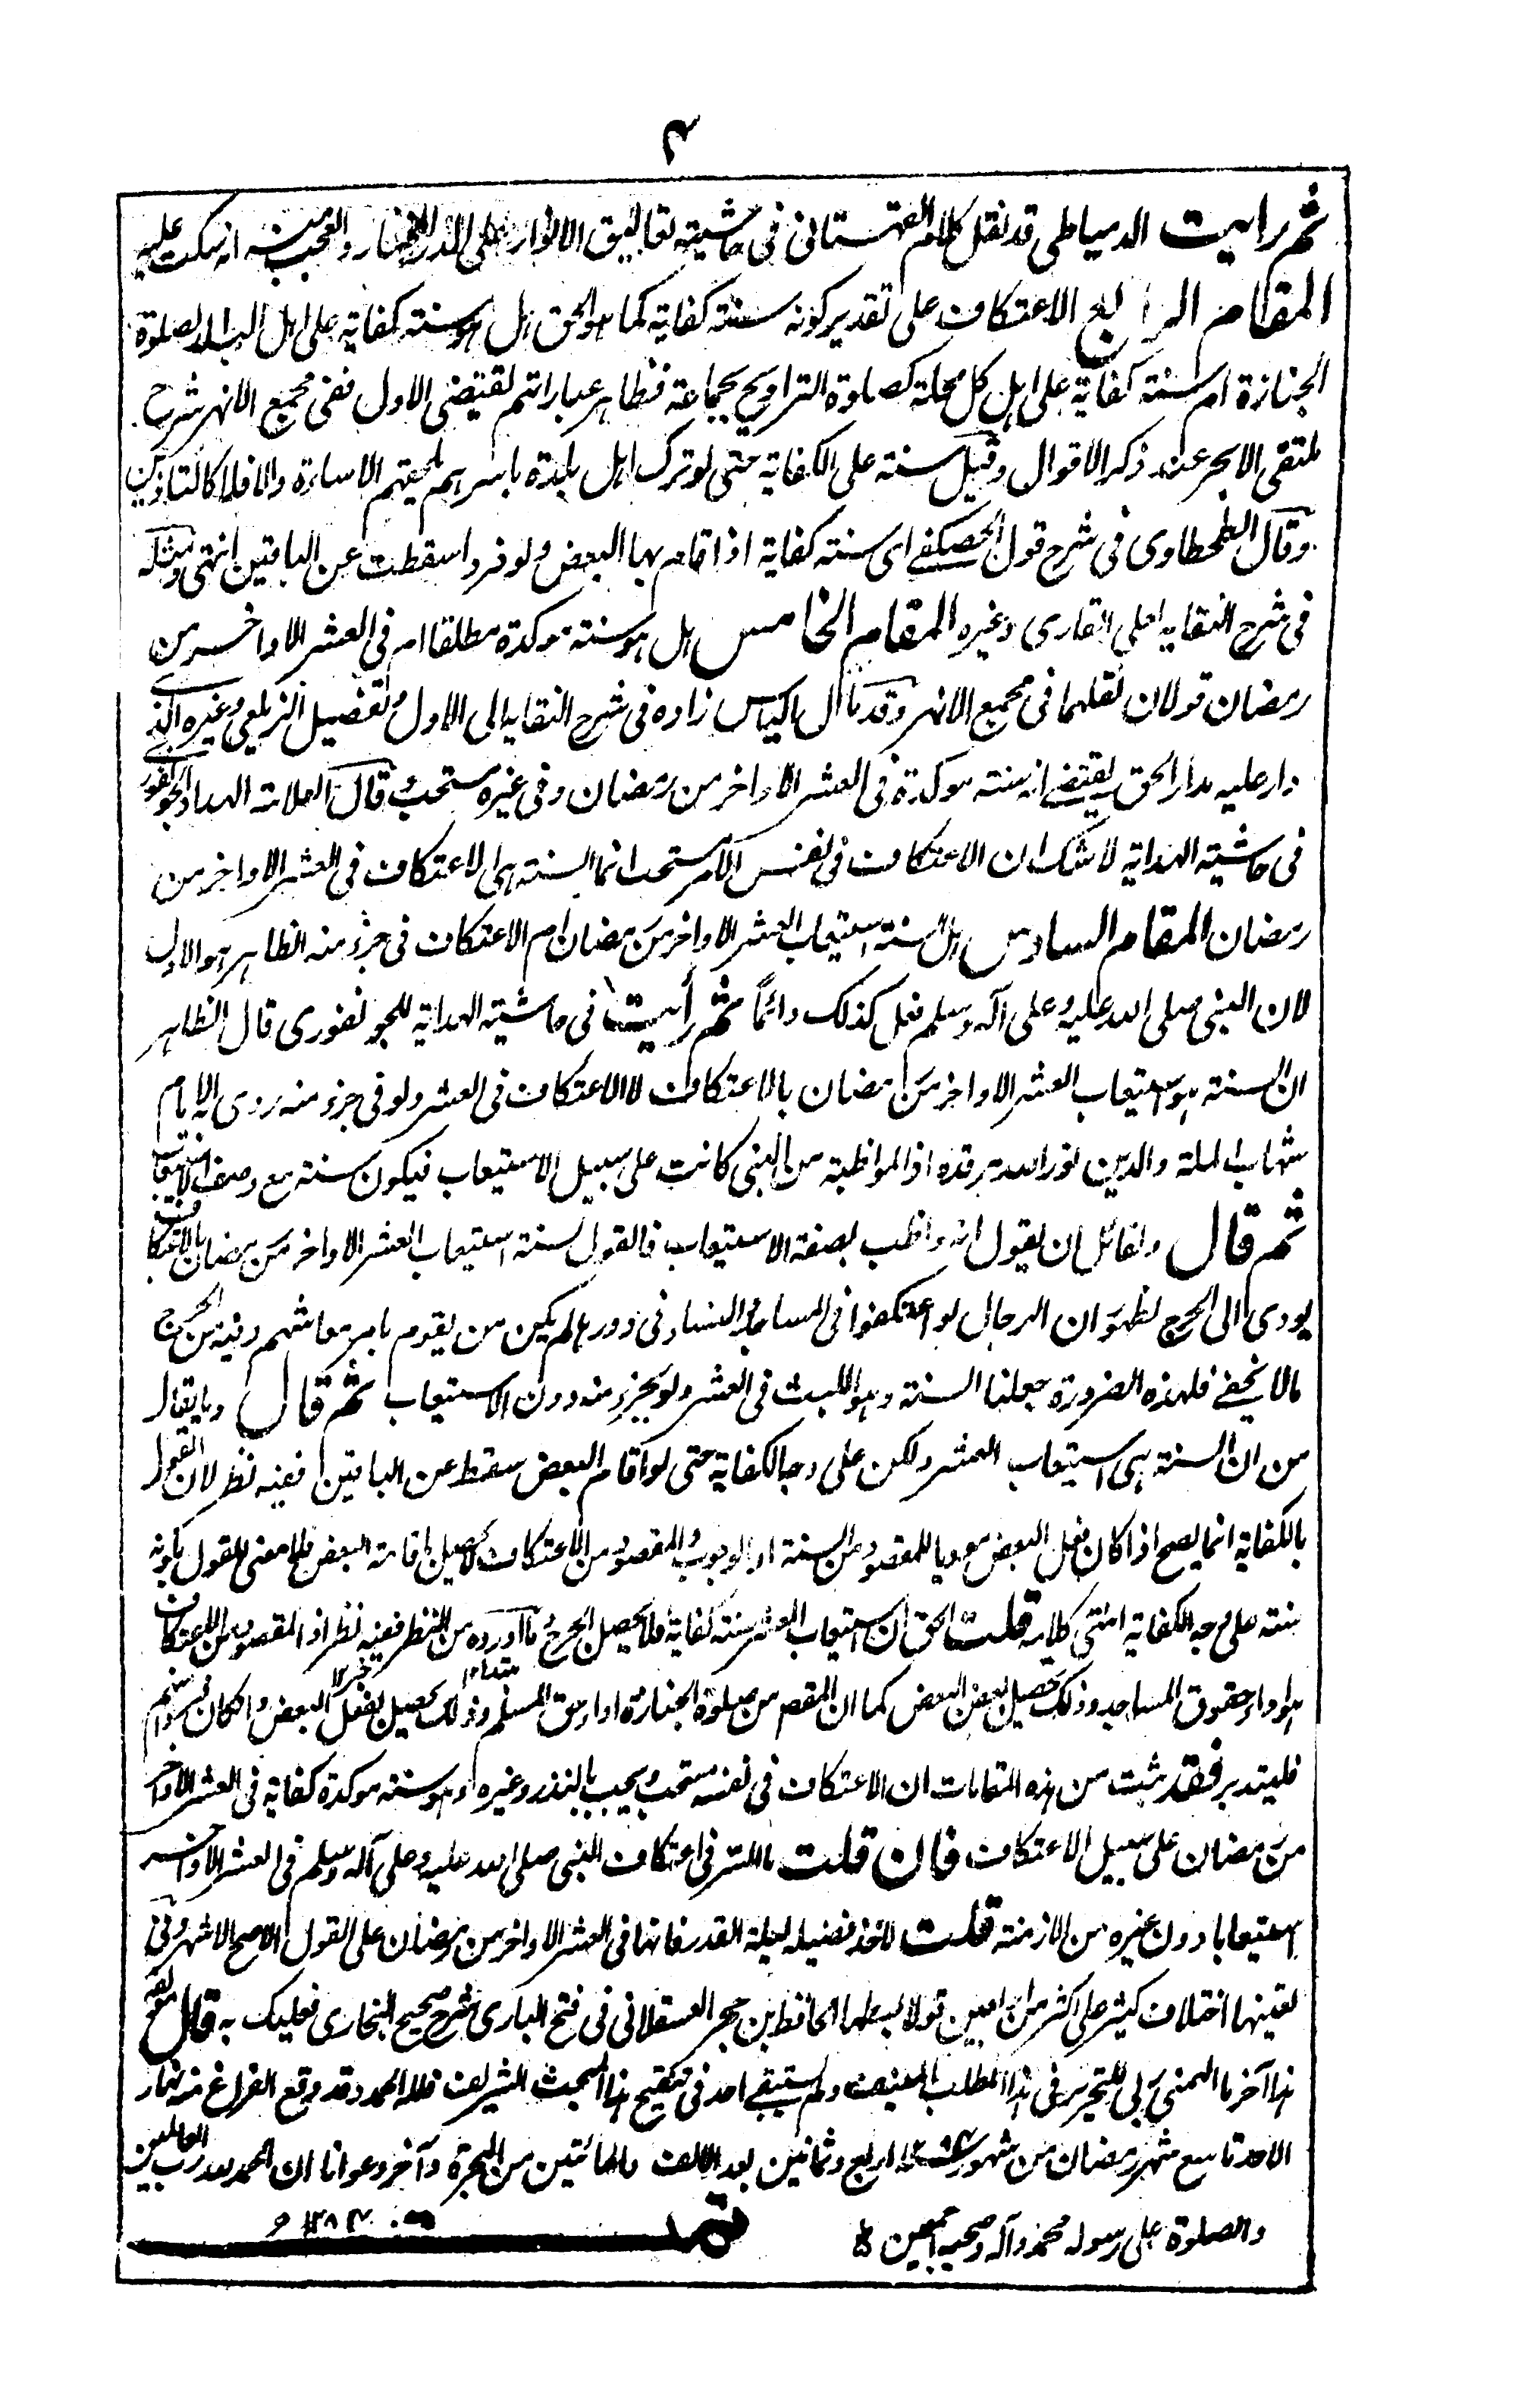 ۴
ثم رايت الدمياطى قد نقل كلام القهستانى فى حاشيته تعاليق الانوار على الدر المختار والعجب منه انه سكت عليه
المقام الرابع الاعتكاف على تقدير كونه سنة كفاية كما هو الحق هل هو سنة كفاية على اهل البلد لصلوة
الجنازة ام سنة كفاية على اهل كل محلة كصلوة التراويح بجماعة فظاهر عباراتهم يقتضى الاول ففى مجمع الانهر شرح
ملتقى الابحر عند ذكر الاقوال وقيل سنة على الكفاية حتى لو ترك اهل بلدة باسرهم يلحقهم الاساءة والا فلا كالتاذين
وقال الطحطاوى فى شرح قول الحصكفے اى سنة كفاية اذا قام بها البعض ولو فردا سقطت عن الباقين انتهى ومثله
فى شرح النقاية لعلى القارى وغيره المقام الخامس هل هو سنة موكدة مطلقا ام فى العشر الاواخر من
رمضان قولان نقلهما فى مجمع الانهر وقد مال الياس زاده فى شرح النقاية الى الاول وتفصيل الزيلعى وغيره الذے
دار عليه مدار الحق يقتضے انه سنة موكدة فى العشر الاواخر من رمضان وفى غيره مستحب وقال العلامة الهداد الجونفورے
فى حاشية الهداية لا شك ان الاعتكاف فى نفس الامر مستحب انما السنة هى الاعتكاف فى العشر الاواخر من
رمضان المقام السادس هل السنة استيعاب العشر الاواخر من رمضان ام الاعتكاف فى جزء منه الظاهر هو الاول
لان النبى صلى الله عليه وعلى آله وسلم فعل كذلك دائماً ثم رأيت فى حاشية الهداية للجونفورى قال الظاهر
ان السنة هو استيعاب العشر الاواخر من رمضان بالاعتكاف لا الاعتكاف فى العشر ولو فى جزء منه روى الامام
شهاب الملة والدين نور الله مرقده اذ المواظبة من النبى كانت على سبيل الاستيعاب فيكون سنة مع وصف الاستيعاب
ثم قال ولقائل ان يقول انه واظب بصفة الاستيعاب فالقول لسنة استيعاب العشر الاواخر من رمضان بالاعتكاف
يودى الى الحرج لظهور ان الرجال لو اعتكفوا فى المساجد والنساء فى دورها لم يكن من يقوم بامر معاشهم وفيه من الحرج
ما لا يخفے فلهذه الضرورة جعلنا السنة وهو اللبث فى العشر ولو بجزء منه دون الاستيعاب ثم قال وما يقال
من ان السنة هى استيعاب العشر ولكن على وجه الكفاية حتى لو اقام البعض سقط عن الباقين ففيه نظر لان القول
بالكفاية انما يصح اذا كان فعل البعض موديا للمقصود من السنة او الوجوب والمقصود من الاعتكاف لا يحصل باقامة البعض فلا معنى للقول بكونه
سنة على وجه الكفاية انتهى كلامه قلت الحق ان استيعاب العشر سنة كفاية فلا يحصل الحرج وما اورده من النظر ففيه نظر اذ المقصود من الاعتكاف
هو اداء حقوق المساجد وذلك يحصل بفعل البعض كما ان المقصد من صلوة الجنازة اداء حق المسلم وذلك يحصل بفعل البعض وان كان
فليتدبر فقد ثبت من هذه المقامات ان الاعتكاف فى نفسه مستحب ويجب بالنذر وغيره وهو سنة موكدة كفاية فى العشر الاواخر
من رمضان على سبيل الاعتكاف فان قلت ما السر فى اعتكاف النبى صلى الله عليه وعلى آله وسلم فى العشر الاواخر
استيعابا دون غيره من الازمنة قلت لاخذ فضيلة ليلة القدر فانها فى العشر الاواخر من رمضان على القول الاصح الاشهر وفى
تعيينها اختلاف كثير على اكثر من اربعين قولا بسطها الحافظ بن حجر العسقلانى فى فتح البارى شرح صحيح البخارى فعليك به قال مولفه
هذا آخر ما الهمنى ربى للتحرير فى هذا المطلب المنيف ولم يسبقنے احد فى تنقيح هذا المبحث الشريف فلله الحمد وقد وقع الفراغ منه نهار
الاحد تاسع شهر رمضان من شهور سنة ۱۲۸۴ اربع وثمانين بعد الالف والمائتين من الهجرة وآخر دعوانا ان الحمد لله رب العالمين
والصلوة على رسوله محمد وآله وصحبه اجمعين تمت سنة ۱۲۸۴ ه